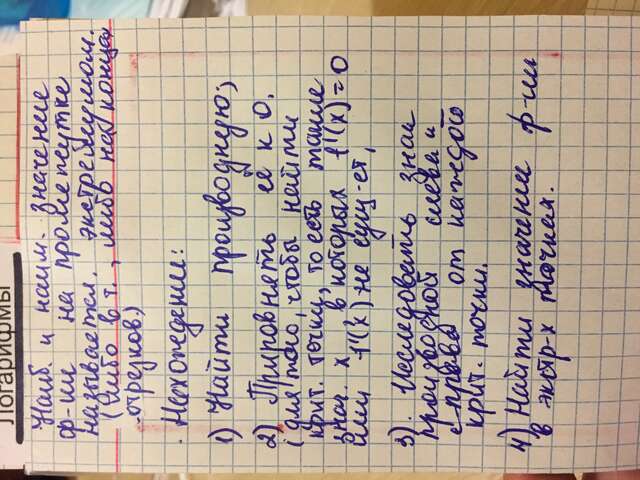 Логарифмы
Наиб. и наим. значение
ф-ии на промежутке
называется экстремумом.
(либо в т., либо на концах
отрезков)
Нахождение:
1) Найти производную;
2) Прировнять её к 0.
для того, чтобы найти
крит. точки, то есть такие
знач. x, в которых f'(x)=0
или f'(x) не сущ-ет,
3). Исследовать знак
производной слева и
справа от каждой
крит. точки.
4) Найти значение ф-ии
в экстр-х точках.